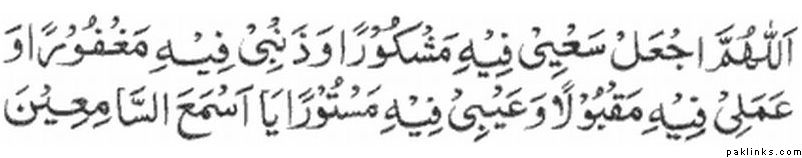 اَللّٰهُمَّ اجْعَلْ سَعْيِىْ فِيْهِ مَشْكُوْرًا وَ ذَنْۢبِىْ فِيْهِ مَغْفُوْرًا وَ
عَمَلِىْ فِيْهِ مَقْبُوْلًا وَ عَيْبِىْ فِيْهِ مَسْتُوْرًا يَا اَسْمَعَ السَّامِعِيْنَ
paklinks.com